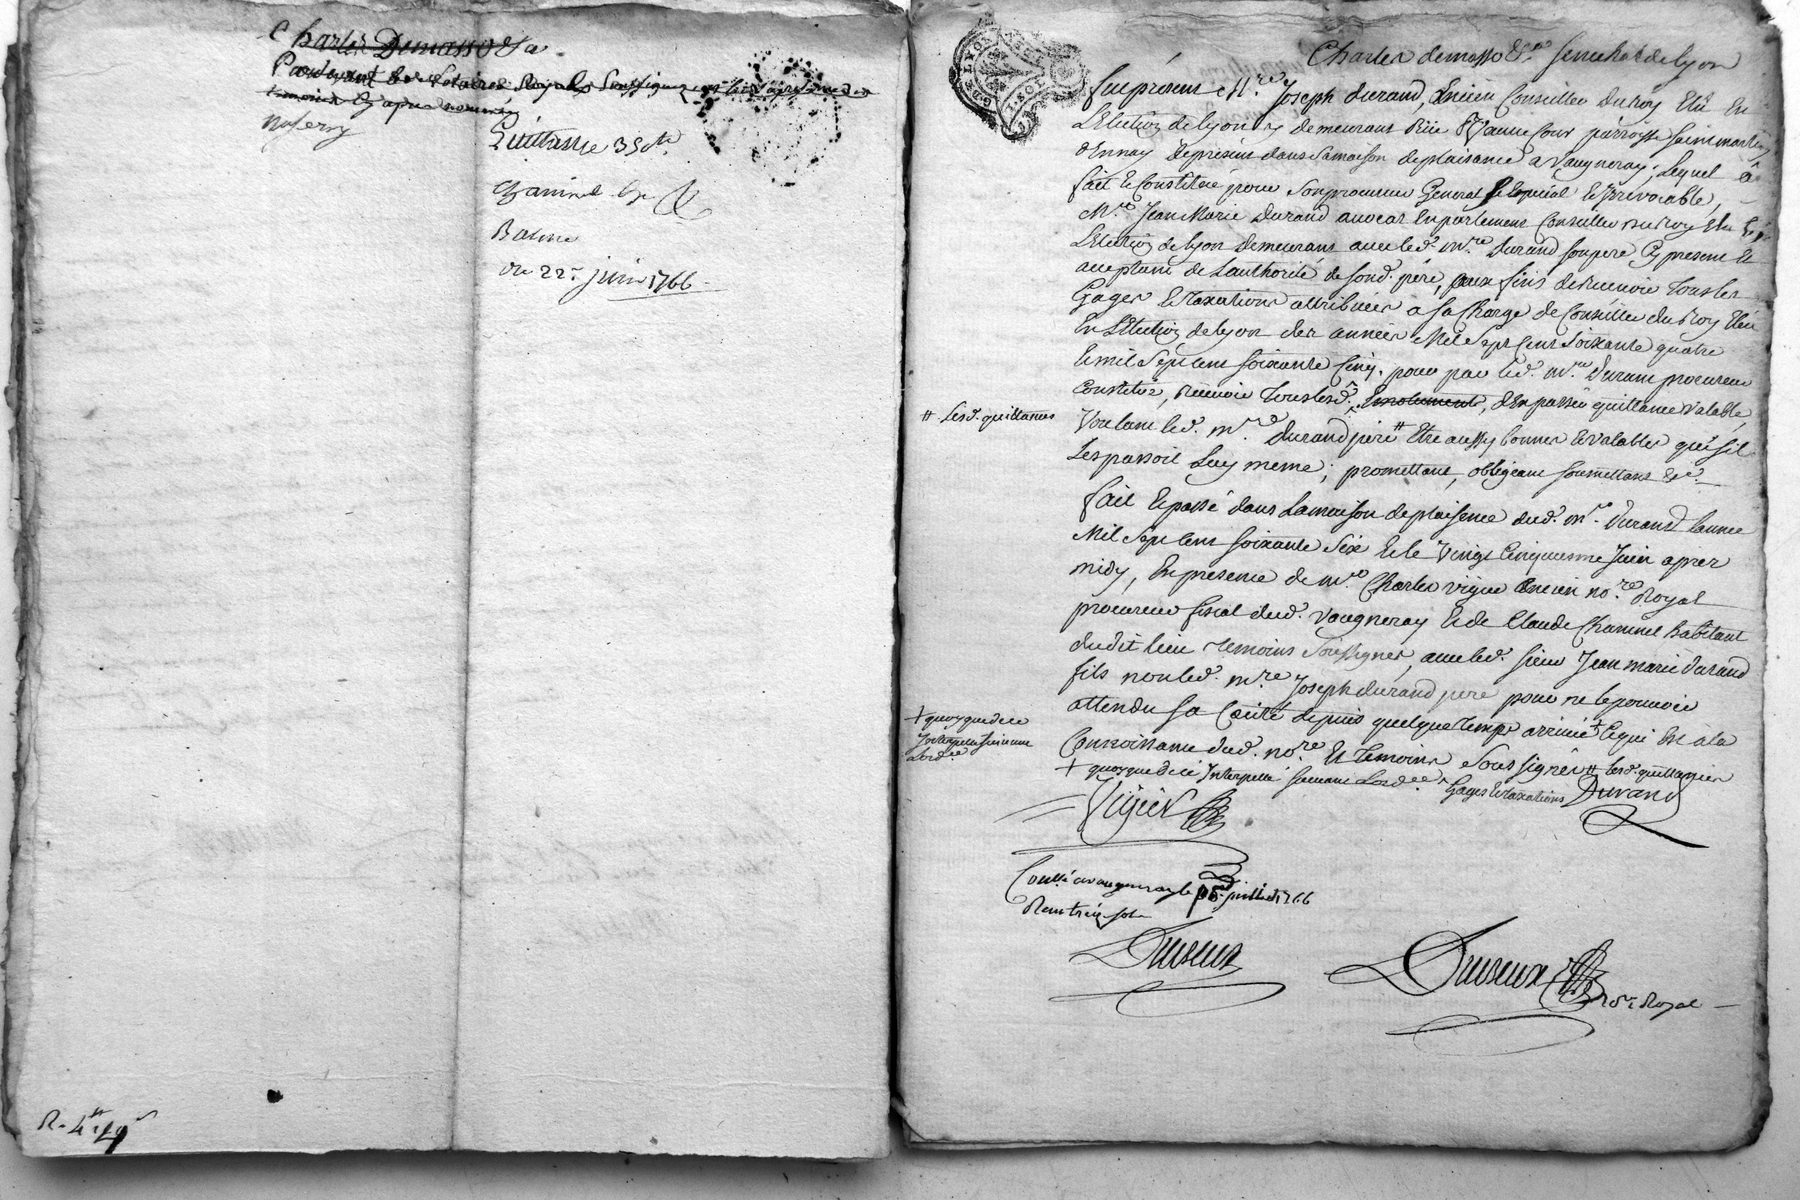 Charles Demasso &a
Pardevant les Notaires Royaux Soussignez
temoins cy apres nommés
Quittance 350#
Chaninel
du 22e juin 1766
R. 4#
Charles demasso &a senechal de lyon
fut présent Mre Joseph durand, Ancien Conseiller Du Roy Elû En
L'Election de lyon y demeurant Rüe Vaunecour parroisse saint martin
d'Ennay de présent dans sa maison de plaisance a Vaugneray; Lequel a
fait & Constitué pour son procureur General & Special & Irrevocable,
Mre Jean Marie Durand avocat En parlement Conseiller du Roy Elu En
L'Election de lyon demeurant avec led. mre Durand son pere Cy present &
acceptant de L'authorité de sond. père, aux fins de recevoir tous les
Gages & taxations attribuées a sa Charge de Conseiller du Roy Elû
En L'Election de lyon des années Mil Sept Cent Soixante quatre
& mil Sept Cent soixante Cinq. pour par led. mre Durand procureur
Constitué, recevoir tous lesd. Emoluments, & En passer quittance Valable,
# Lesd. quittances
Voulant led. mre Durand père # Etre aussy bonnes & valables que s'il
Les passoit Luy meme; promettant, obligeant soumettant &c.
fait & passé dans La maison de plaisance dud. mre Durand l'année
Mil Sept Cent soixante Six & le Vingt Cinquiesme Juin apres
midy, En presence de mre Charles vigier Ancien nore Royal
procureur fiscal dud. Vaugneray & de Claude Chaninel habitant
dudit lieu temoins Soussignes, avec led. sieur Jean marie durand
fils non led. mre Joseph durand pere pour ne le pouvoir
attendu sa Cecité depuis quelque temps arrivée + Ce qui Est a la
+ quoyque de ce
Interpellé suivant
Lordce
Connoissance dud. nore & temoins Soussignés # lesd. quittances
+ quoyque de ce Interpellé suivant Lordce Gages & taxations Durand
Vigier
Conllé a vaugneray le 15 juillet 1766
Reçu treize sols
Duseux
Duseux nore Royal